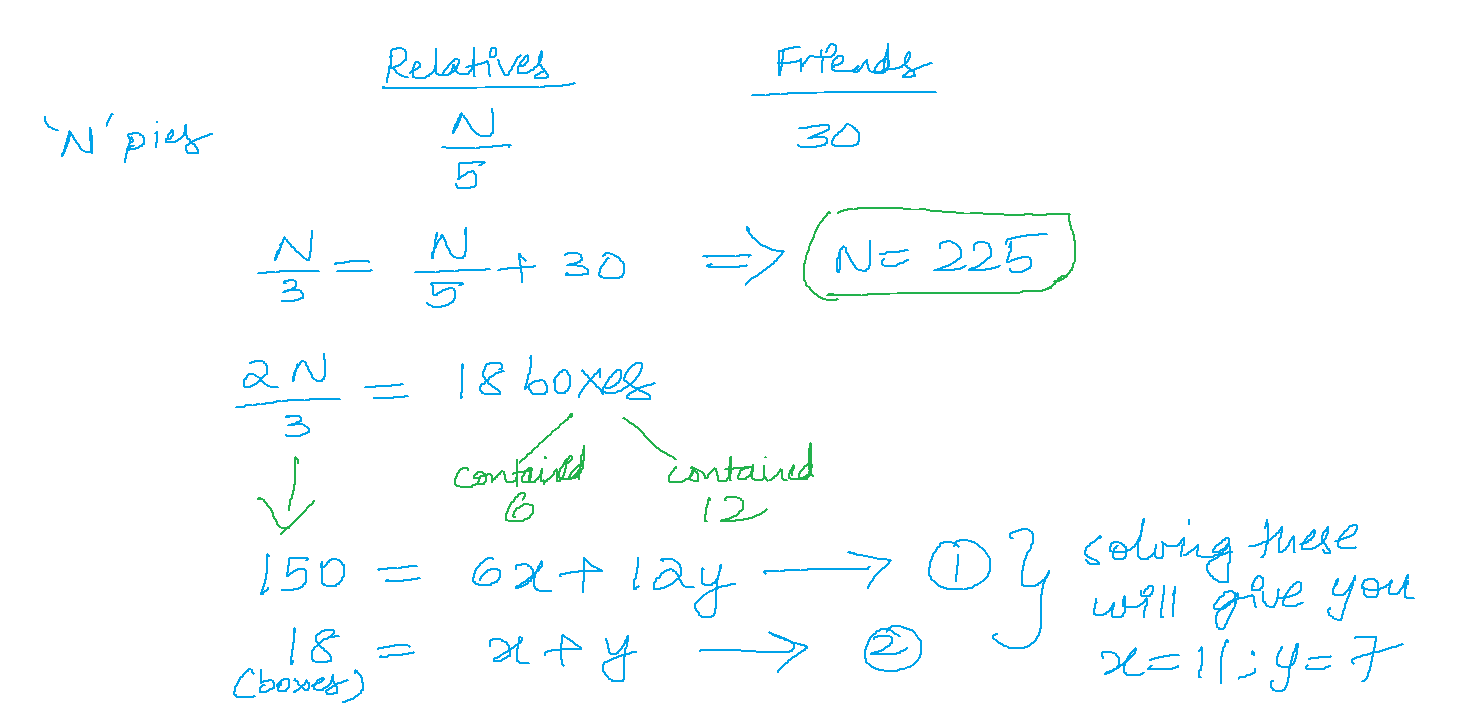 Relatives Friends
'N' pies N/5 30
N/3 = N/5 + 30 => N = 225
2N/3 = 18 boxes
contained 6 contained 12
150 = 6x + 12y → ①
18 (boxes) = x + y → ②
} solving these
will give you
x = 11; y = 7